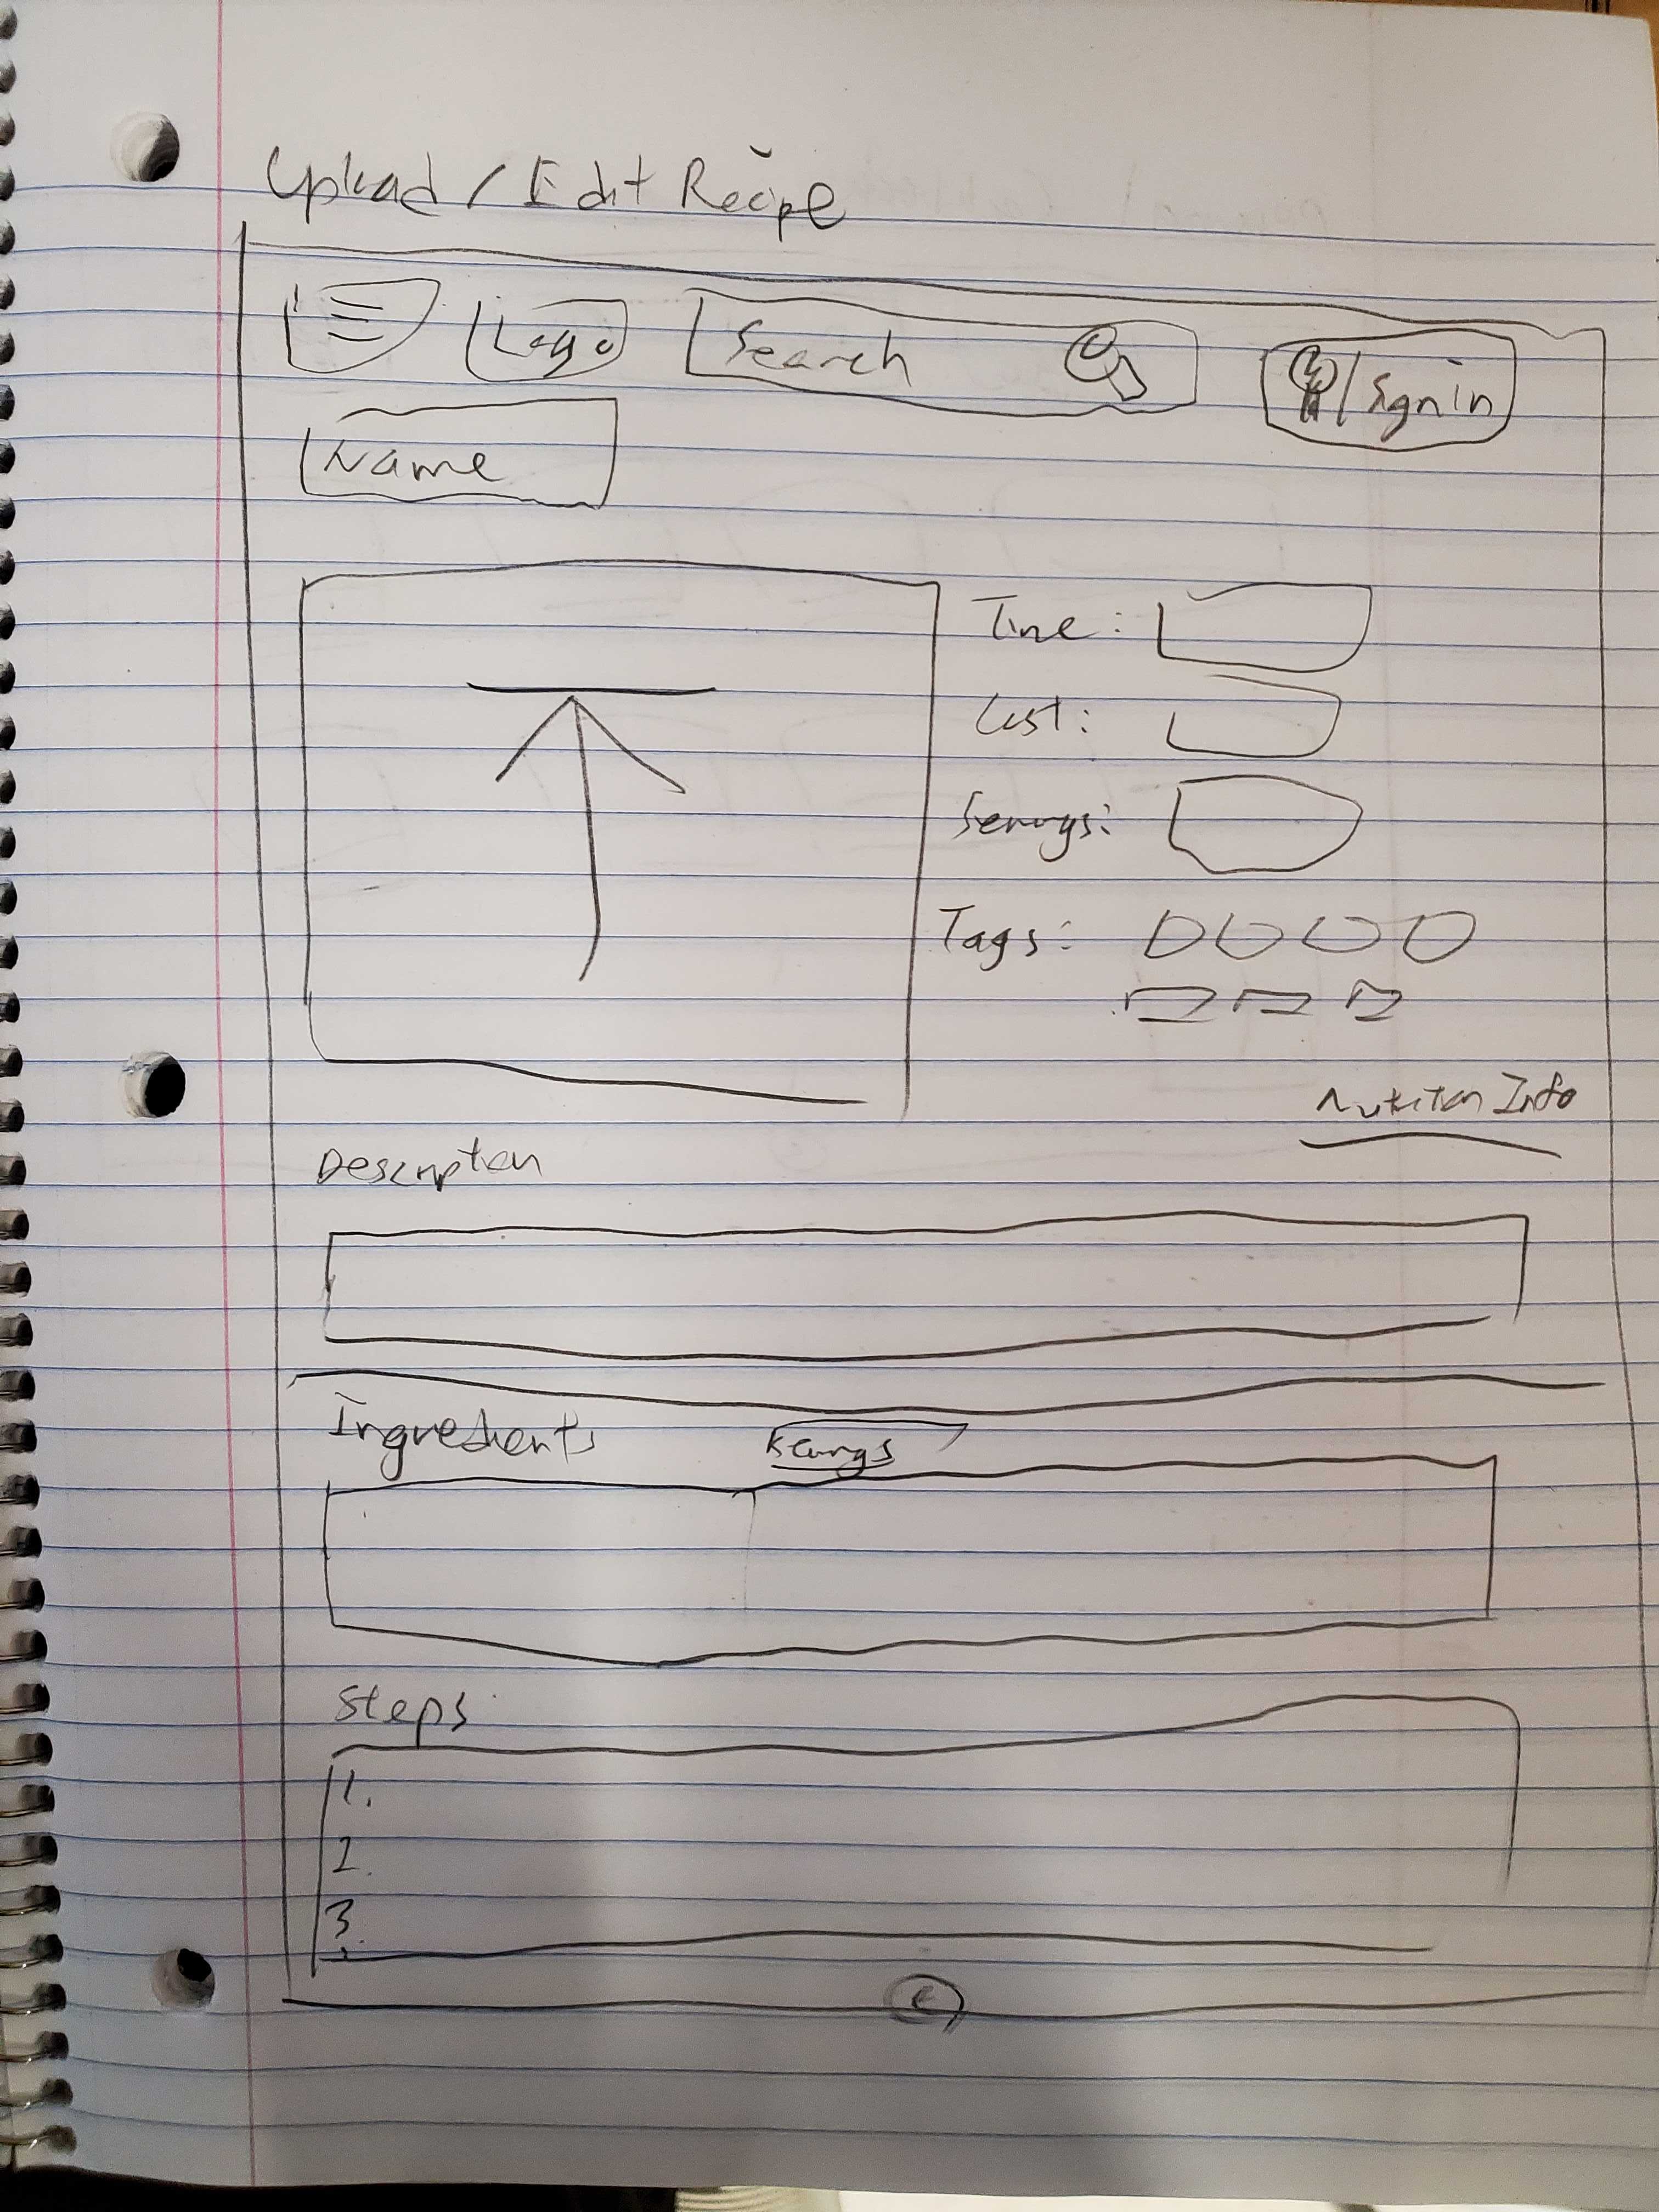 Upload / Edit Recipe
Logo
Search
/ Signin
Name
Time:
Cost:
Servings:
Tags:
Nutrition Info
Description
Ingredients
Steps
1.
2.
3.